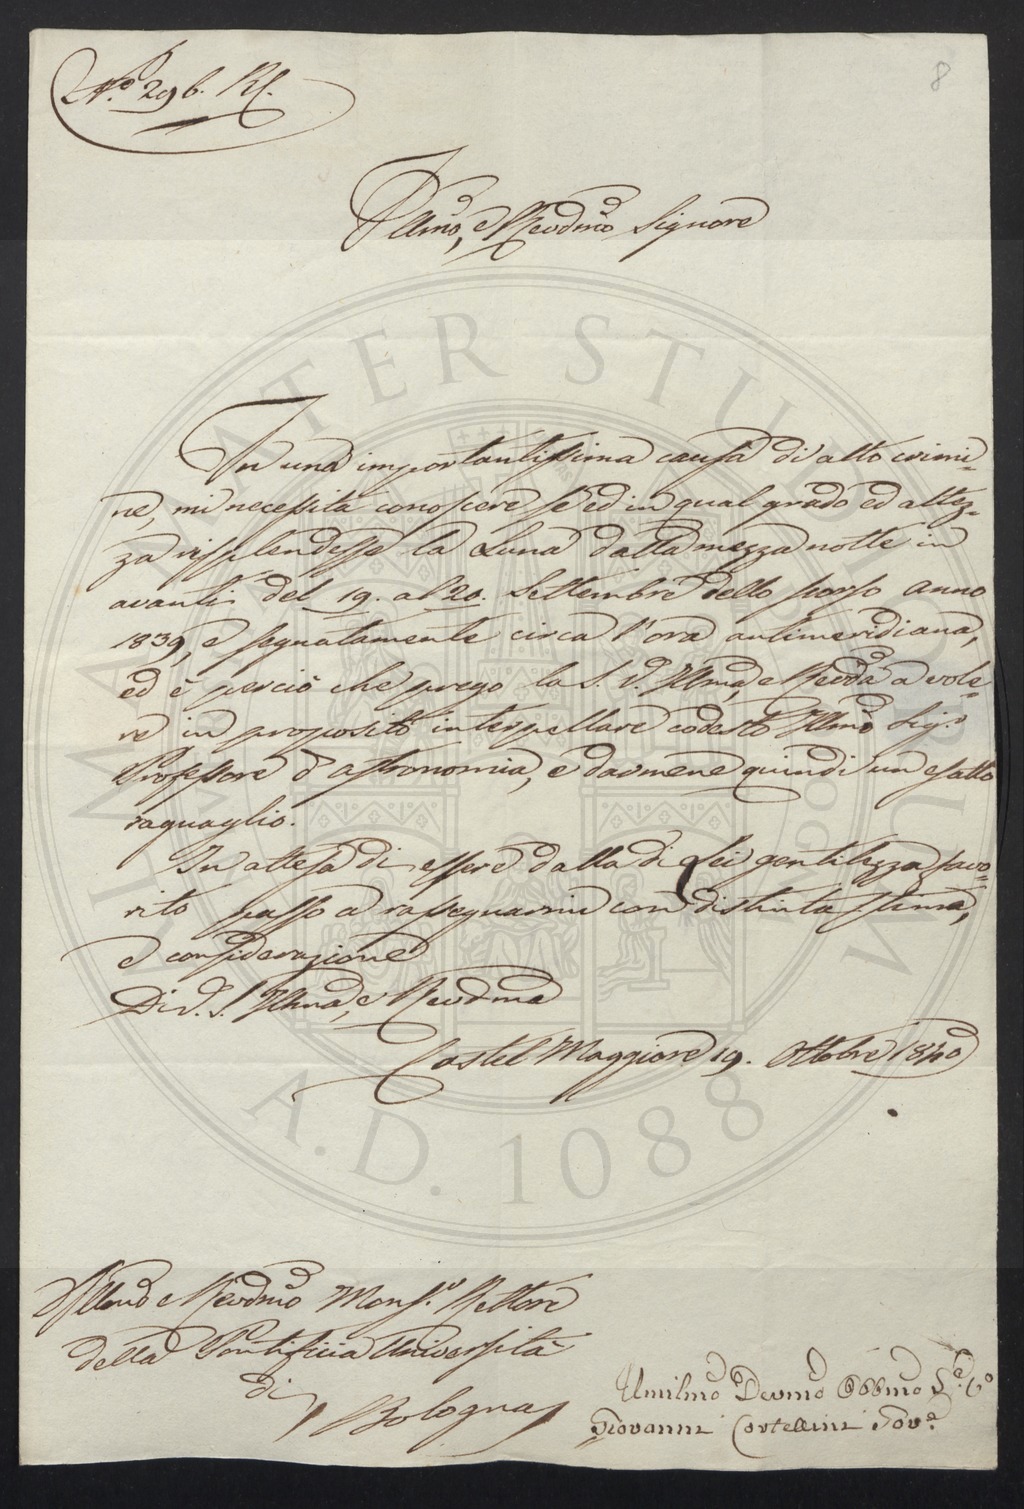 8
N.o 296. Rl.
Illmo, e Revdmo Signore
In una importantissima causa di alto crimi-
ne, mi necessita conoscere se ed in qual grado ed altez-
za risplendesse la Luna dalla mezza notte in
avanti del 19. al 20. Settembre dello scorso anno
1839, e segnatamente circa l'ora antimeridiana,
ed è perciò che prego la S. V. Illma, e Revda a vole-
re in proposito interpellare codesto Illmo Sig.r
Professore d'astronomia, e darmene quindi un esatto
raguaglio.
In attesa di essere dalla di Lei gentilezza favo-
rito passo a rassegnarmi con distinta stima,
e considerazione
Di V. S. Illma, e Revdma
Castel Maggiore 19. Ottobre 1840
Illmo e Revdmo Mons.r Rettore
della Pontificia Università
di
Bologna
Umilmo Devmo Obbmo
Giovanni Cortellini Gov.e
ALMA MATER STUDIORUM
A.D. 1088